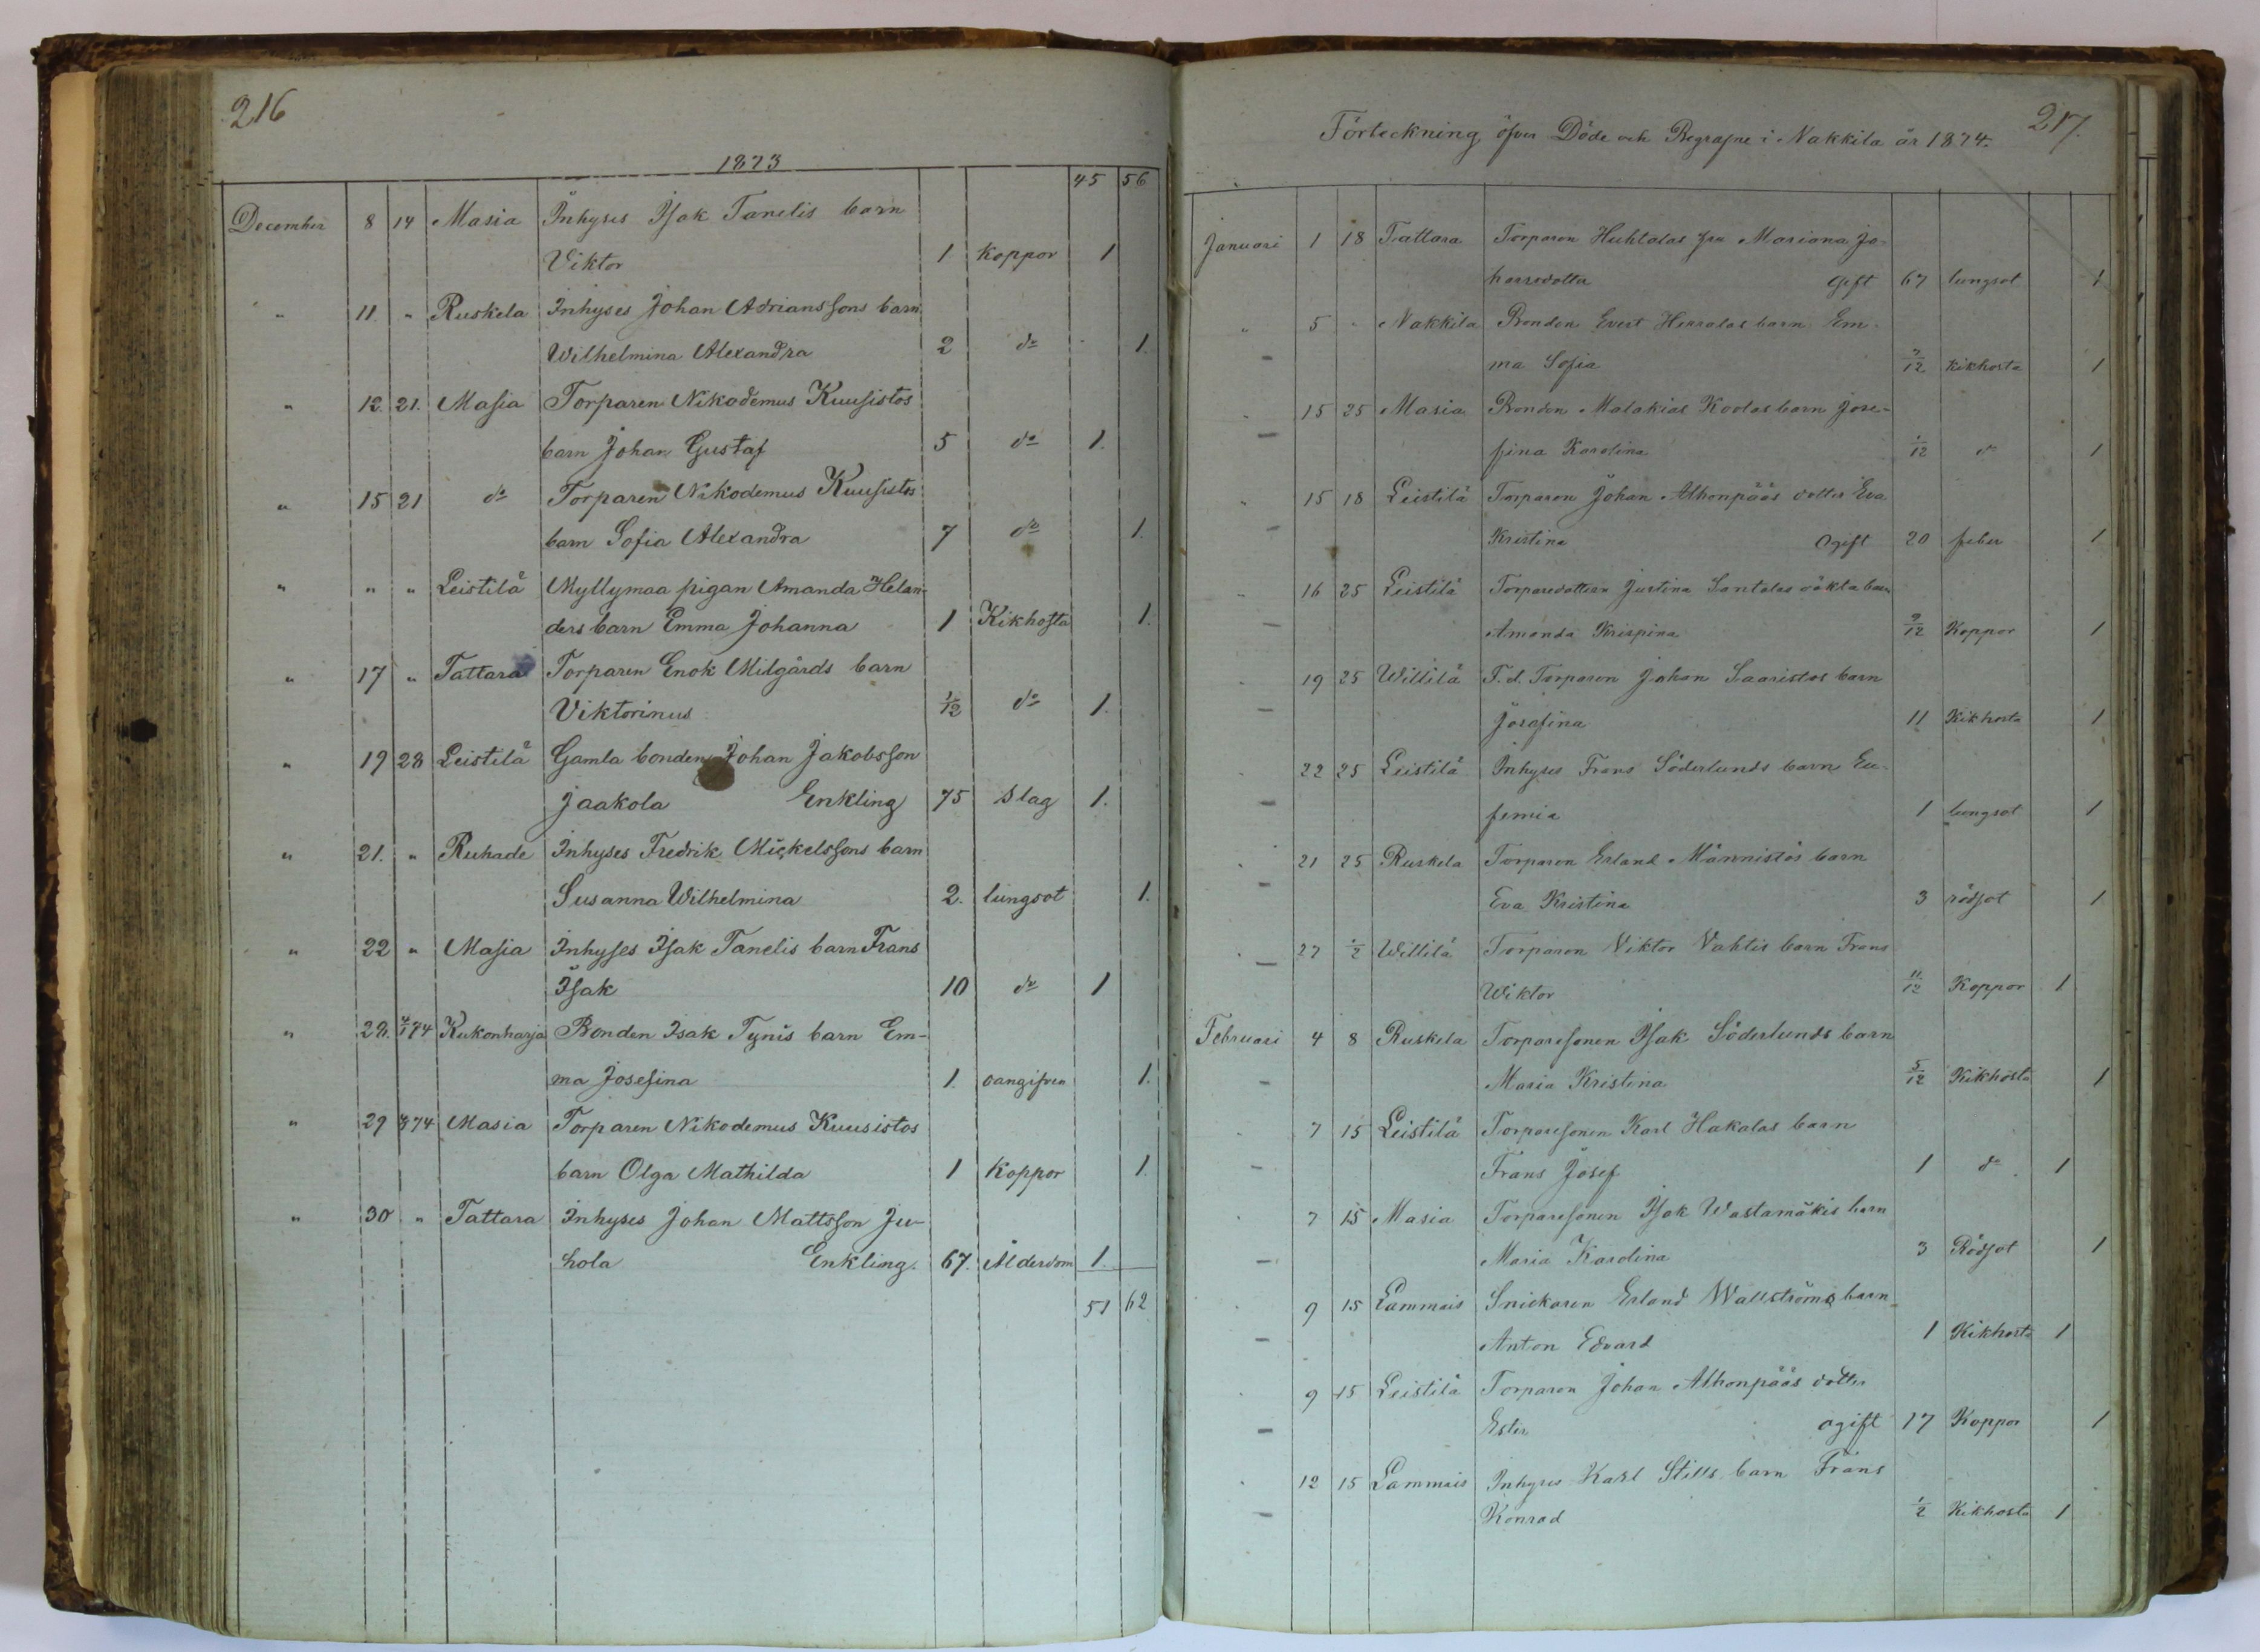 216
1873
45 56
December 8 14 Masia Inhyses Isak Tanelis barn
Viktor 1 koppor 1
" 11. " Ruskela Inhyses Johan Adrianssons barn
Wilhelmina Alexandra 2 do 1.
" 12. 21. Masia Torparen Nikodemus Kuusistos
barn Johan Gustaf 5 do 1.
" 15 21 do Torparen Nikodemus Kuusistos
barn Sofia Alexandra 7 do 1.
" " " Leistilä Myllymaa pigan Amanda Helan-
ders barn Emma Johanna 1 Kikhosta 1.
" 17 " Tattara Torparen Enok Milgårds barn
Viktorinus 1/12 do 1.
" 19 28 Leistilä Gamla bonden Johan Jakobsson
Jaakola Enkling 75 slag 1.
" 21. " Ruhade Inhyses Fredrik Mickelssons barn
Susanna Wilhelmina 2. lungsot 1.
" 22 " Masia Inhyses Isak Tanelis barn Frans
Isak 10 do 1
" 28. 4/1 74 Kukonharja Bonden Isak Tynis barn Em-
ma Josefina 1. oangifven 1.
" 29 74 Masia Torparen Nikodemus Kuusistos
barn Olga Mathilda 1 koppor 1.
" 30 " Tattara Inhyses Johan Mattsson Ju-
hola Enkling. 67. Ålderdom 1.
51 62
217.
Förteckning öfver Döde och Begrafne i Nakkila år 1874.
Januari 1 18 Tattara Torparen Huhtalas fru Mariana Jo-
hansdotter Gift 67 lungsot 1
" 5 " Nakkila Bonden Evert Heurolas barn Em-
ma Sofia 7/12 kikhosta 1
" 15 25 Masia Bonden Malakias Koolas barn Jose-
fina Karolina 1/12 do 1
" 15 18 Leistilä Torparen Johan Alhonpääs dotter Eva
Kristina Ogift 20 feber 1
" 16 25 Leistilä Torparedottren Justina Santalas oäkta barn
Amanda Krispina 9/12 Koppor 1
" 19 25 Willilä F.d. Torparen Johan Saaristos barn
Josefina 11 Kikhosta 1
" 22 25 Leistilä Inhyses Frans Söderlunds barn Eu-
femia 1 lungsot 1
" 21 25 Ruskela Torparen Erland Männistös barn
Eva Kristina 3 rödsot 1
" 27 1/2 Willilä Torparen Viktor Vahtis barn Frans
Wiktor 11/12 Koppor 1
Februari 4 8 Ruskela Torparesonen Isak Söderlunds barn
Maria Kristina 5/12 Kikhosta 1
" 7 15 Leistilä Torparesonen Karl Hakalas barn
Frans Josef 1 do 1
" 7 15 Masia Torparesonen Isak Wastamäkis barn
Maria Karolina 3 Rödsot 1
" 9 15 Lammais Snickaren Erland Wallströms barn
Anton Edvard 1 Kikhosta 1
" 9 15 Leistilä Torparen Johan Alhonpääs dotter
Ester ogift 17 Koppor 1
" 12 15 Lammais Inhyses Karl Stills barn Frans
Konrad 1/2 Kikhosta 1